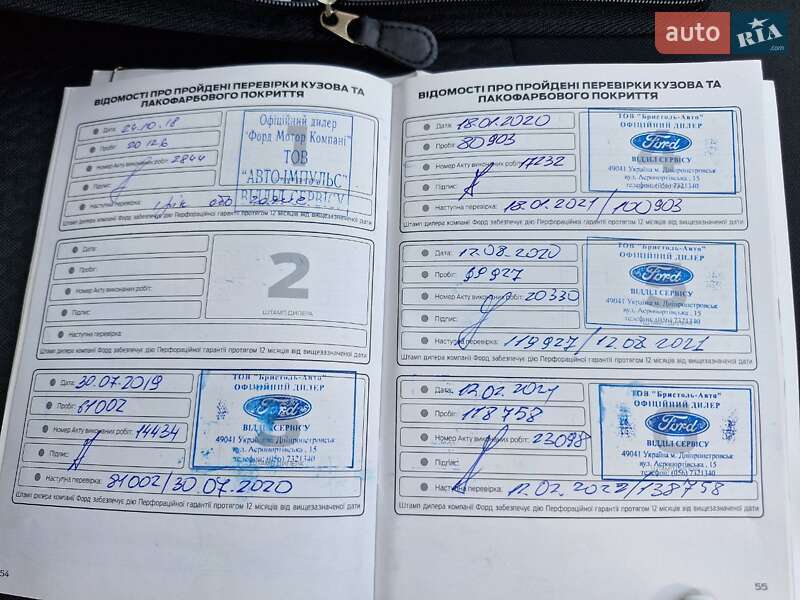 auto RIA.com
ВІДОМОСТІ ПРО ПРОЙДЕНІ ПЕРЕВІРКИ КУЗОВА ТА
ЛАКОФАРБОВОГО ПОКРИТТЯ
Дата: 24.10.18
Пробіг: 20126
Номер Акту виконаних робіт: 2844
Підпис:
Наступна перевірка: 1 рік або
Офіційний дилер
"Форд Мотор Компані"
ТОВ
"АВТО-ІМПУЛЬС"
ВІДДІЛ СЕРВІСУ
Штамп дилера компанії Форд забезпечує дію Перфораційної гарантії протягом 12 місяців від вищезазначеної дати
Дата:
Пробіг:
Номер Акту виконаних робіт:
Підпис:
Наступна перевірка:
2
ШТАМП ДИЛЕРА
Штамп дилера компанії Форд забезпечує дію Перфораційної гарантії протягом 12 місяців від вищезазначеної дати
Дата: 30.07.2019
Пробіг: 61002
Номер Акту виконаних робіт: 14434
Підпис:
Наступна перевірка: 81002/30.07.2020
ТОВ "Бристоль-Авто"
ОФІЦІЙНИЙ ДИЛЕР
Ford
ВІДДІЛ СЕРВІСУ
49041 Україна м. Дніпропетровськ
вул. Аеропортівська, 15
телефон: (056) 7321340
ШТАМП ДИЛЕРА
Штамп дилера компанії Форд забезпечує дію Перфораційної гарантії протягом 12 місяців від вищезазначеної дати
54
ВІДОМОСТІ ПРО ПРОЙДЕНІ ПЕРЕВІРКИ КУЗОВА ТА
ЛАКОФАРБОВОГО ПОКРИТТЯ
Дата: 18.01.2020
Пробіг: 80903
Номер Акту виконаних робіт: 17232
Підпис:
Наступна перевірка: 18.01.2021/100903
ТОВ "Бристоль-Авто"
ОФІЦІЙНИЙ ДИЛЕР
Ford
ВІДДІЛ СЕРВІСУ
49041 Україна м. Дніпропетровськ
вул. Аеропортівська, 15
телефон:(056) 7321340
Штамп дилера компанії Форд забезпечує дію Перфораційної гарантії протягом 12 місяців від вищезазначеної дати
Дата: 12.08.2020
Пробіг: 99927
Номер Акту виконаних робіт: 20330
Підпис:
Наступна перевірка: 119927/12.08.2021
ТОВ "Бристоль-Авто"
ОФІЦІЙНИЙ ДИЛЕР
Ford
ВІДДІЛ СЕРВІСУ
49041 Україна м. Дніпропетровськ
вул. Аеропортівська, 15
телефон: (056) 7321340
Штамп дилера компанії Форд забезпечує дію Перфораційної гарантії протягом 12 місяців від вищезазначеної дати
Дата: 12.02.2021
Пробіг: 118758
Номер Акту виконаних робіт: 23098
Підпис:
Наступна перевірка: 12.02.2022/138758
ТОВ "Бристоль-Авто"
ОФІЦІЙНИЙ ДИЛЕР
Ford
ВІДДІЛ СЕРВІСУ
49041 Україна м. Дніпропетровськ
вул. Аеропортівська, 15
телефон: (056) 7321340
Штамп дилера компанії Форд забезпечує дію Перфораційної гарантії протягом 12 місяців від вищезазначеної дати
55